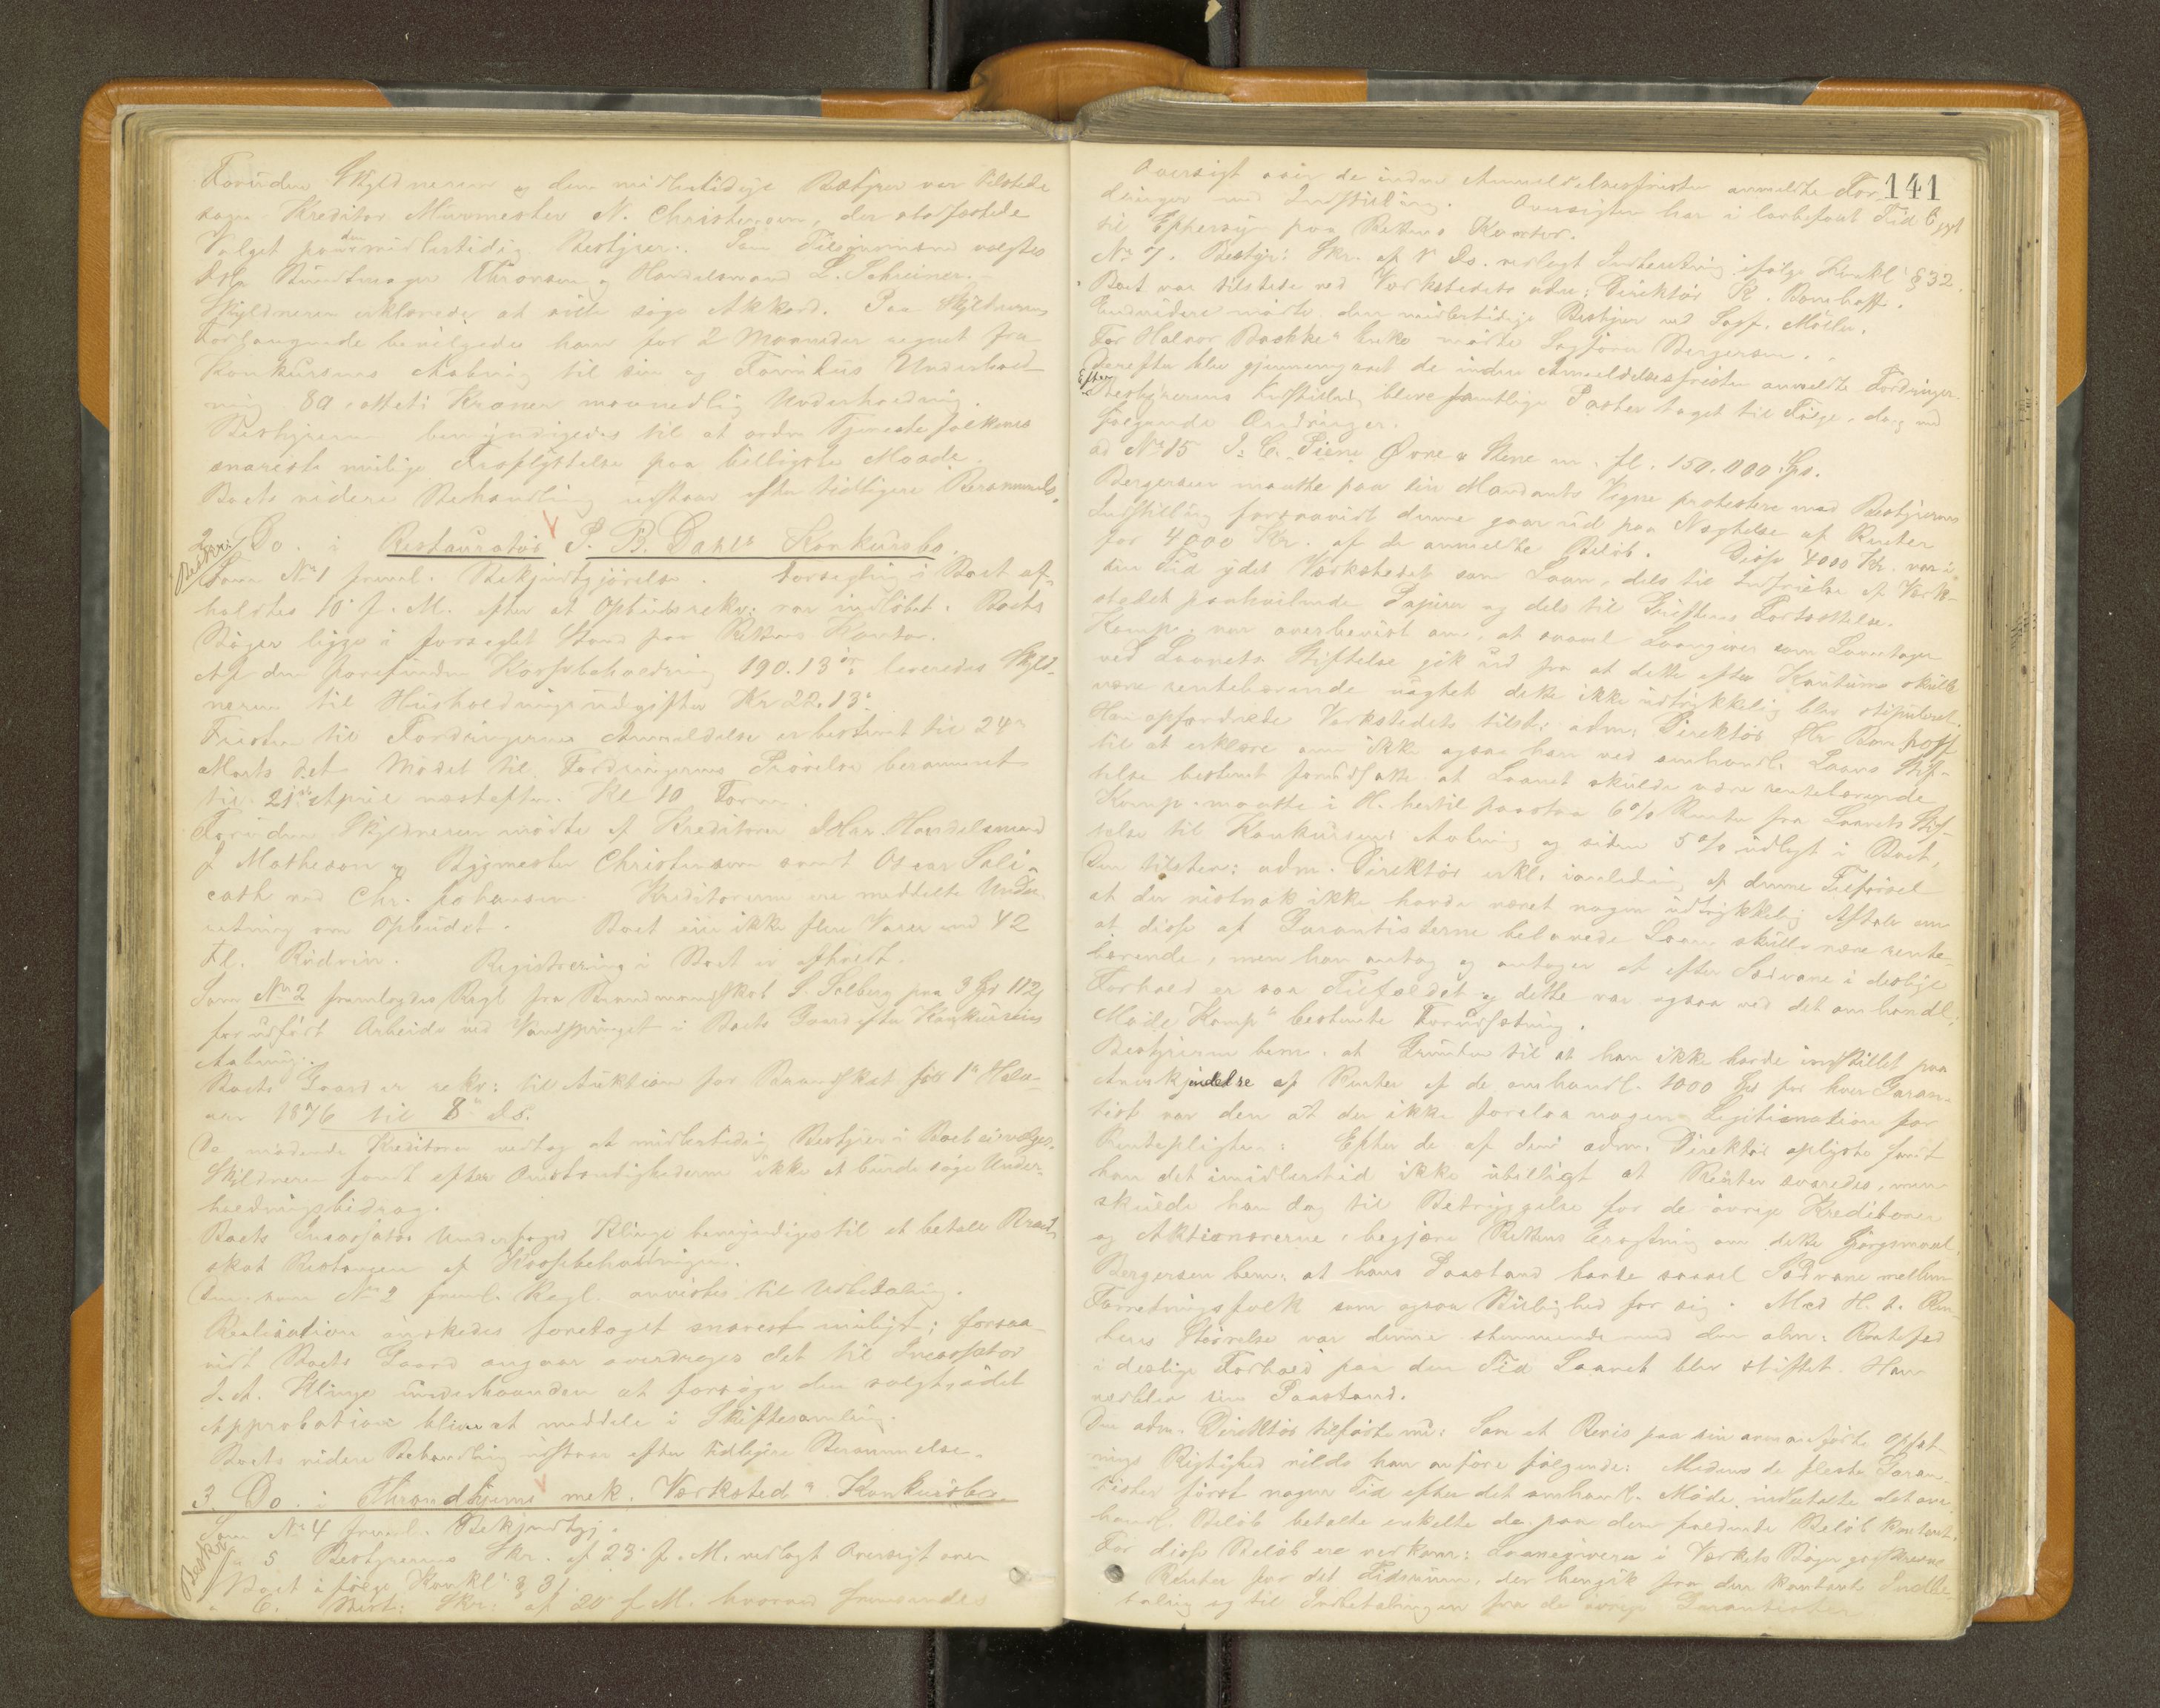 Foruden Skyldneren og den midlertidige Bestyrer var tilstede
som Kreditor Muurmester N. Christensen, der stadfæstede
Valget paa den midlertidig Bestyrer. Som Tilsynsmænd valgtes
Buntmager Thronsen og Handelsmand L. Schreiner.
Skyldneren erklærede at ville søge Akkord. Paa Skyldnerens
Forlangende bevilgedes ham for 2 Maaneder regnet fra
Konkursens Aabning til sin og Families Underhold-
ning 80 otteti Kroner maanedlig Underholdning.
Bestyreren bemyndigedes til at ordne Tjenestefolkenes
snarest mulige Fraflyttelse paa billigste Maade.
Boets videre Behandling udstaar efter tidligere Berammelse.
2. Do. i Restauratør P. B. Dahls Konkursbo.
Beskr:
Som No 1 freml. Bekjendtgjørelse. Forsegling i Boet af-
holdtes 10 f. M. efter at Opbudsrekv: var indløbet. Boets
Bøger ligge i forseglet Stand paa Rettens Kontor.
Af den forefundne Kassebeholdning 190.13 leveredes Skyld-
neren til Husholdningsudgifter Kr 22.13.
Fristen til Fordringernes Anmeldelse er bestemt til 24
Marts d.et Mødet til Fordringernes Prøvelse berammet
til 21st April næstefter. Kl 10 Form.
Foruden Skyldneren mødte af Kreditorer DHrr Handelsmand
J Matheson og Bygmester Christensen samt Oscar Sali-
cath ved Chr. Johansen. Kreditorerne ere meddelte Under-
retning om Opbudet. Boet eier ikke flere Varer end 42
Fl. Rødvin. Registrering i Boet er afholdt.
Som No 2 fremlagdes Regl fra Brandmandskab S. Solberg paa 3 Spd 112 s
for udført Arbeide ved Vandspringet i Boets Gaard efter Konkursens
Aabning.
Boets Gaard er rekv: til Auktion for Brandskat for 1ste Halv-
aar 1876 til 8 ds.
De mødende Kreditorer vedtog at midlertidig Bestyrer i Boet ei vælges.
Skyldneren fandt efter Omstændighederne ikke at burde søge Under-
holdningsbidrag.
Boets Incassator Underfoged Klinge bemyndiges til at betale Brand-
skat Restancen af Kassebeholdningen.
Den som No 2 freml. Regl. anvistes til Udbetaling.
Realisation ønskedes foretaget snarest muligt; forsaa-
vidt Boets Gaard angaar overdroges det til Incassator
J. A. Klinge underhaanden at forsøge den solgt, idet
Approbation bliver at meddele i Skiftesamling.
Boets videre Behandling udstaar efter tidligere Berammelse.
3. Do. i Throndhjems mek. Værksted's Konkursbo.
Beskr
Som No 4 freml. Bekjendtgj.
" 5 Bestyrerens Skr. af 23 f. M. vedlagt Oversigt over
Boet ifølge Konkl § 31
" 6. Best: Skr: af 20 f. M. hvorved fremsendes
141
Oversigt over de inden Anmeldelsesfristen anmeldte For-
dringer med Indstilling. Oversigten har i lovbefalet Tid ligget
til Eftersyn paa Rettens Kontor.
No 7. Bestyr: Skr. af ds. vedlagt Indberetning ifølge Konkl § 32.
I Boet var tilstede ved Værkstedets adm: Direktør
Endvidere mødte den midlertidige Bestyrer ved Sagf. Møller.
For Halvor Bachke's Enke mødte Sagfører Bergersen.
Derefter blev gjennemgaaet de inden Anmeldelsesfristen anmeldte Fordringer.
Efter
Bestyrerens Indstilling bleve samtlige Poster taget til Følge, dog med
følgende Ændringer.
ad No 15 I. C. Piene Øvre & Stene m. fl. 150.000 Spd.
Bergersen maatte paa sin Mandants Vegne protestere mod Bestyrerens
Indstilling forsaavidt denne gaar ud paa Nægtelse af Renter
for 4000 Kr. af de anmeldte Beløb. Disse 4000 Kr. var i
sin Tid ydet Værkstedet som Laan, dels til Indfrielse af Værk-
stedet paahvilende Papirer og dels til Driftens Fortsættelse.
Komp. var overbevist om, at saavel Laangiver som Laantager
ved Laanets Stiftelse gik ud fra at dette efter Kontumo skulle
være rentebærende uagtet dette ikke udtrykkelig blev stipuleret.
Han opfordrede Værkstedets tilst: adm. Direktør Hr
til at erklære om ikke ogsaa han ved omhandl. Laans Stif-
telse bestemt forudsatte at Laanet skulde være rentebærende
Komp. maatte i H. hertil paastaa 6 % Rente fra Laanets Stif-
telse til Konkursens Aabning og siden 5 % udlagt i Boet.
Den tilstev: adm. Direktør erkl. i anledning af denne Tilførsel
at der vistnok ikke havde været nogen udtrykkelig Aftale om
at disse af Garantisterne belaanede Laan skulle være rente-
bærende, men han antog og antager at efter Sædvane i deslige
Forhold er saa Tilfældet og dette var ogsaa ved det omhandl.
Møde Komp's bestemte Forudsætning.
Bestyreren bem. at Grunden til at han ikke havde indstillet paa
Anerkjendelse af Renter af de omhandl. 1000 Spd for hver Garan-
tist var den at der ikke forelaa nogen Legitimation for
Rentepligten. Efter de af den adm. Direktør oplyste fandt
han det imidlertid ikke ubilligt at Renter svaredes, men
skulde han dog til Betryggelse for de øvrige Kreditorer
og Aktionærerne, begjære Rettens Eragtning om dette Spørgsmaal.
Bergersen bem. at hans Paastand havde saavel Sædvane mellem
Forretningsfolk som ogsaa Billighed for sig. Med H. t. Ren-
tens Størrelse var denne stemmende med den alm: Rentefod
i deslige Forhold paa den Tid Laanet blev stiftet. Han
nedlagde sin Paastand.
Den adm. Direktør tilførte nu: Som et Bevis paa sin ovenanførte Opfat-
nings Rigtighed vilde han anføre følgende: Medens de fleste Garan-
tister først nogen Tid efter det omhandl. Møde indbetalte det om-
handl. Beløb betalte enkelte de paa dem faldende Beløb kontant.
For disse Beløb ere vedkom: Laangivere i Værkets Bøger godskrevne
Renter for det Tidsrum, der hengik fra den kontante Indbe-
taling og til Indbetalingen fra de øvrige Garantister